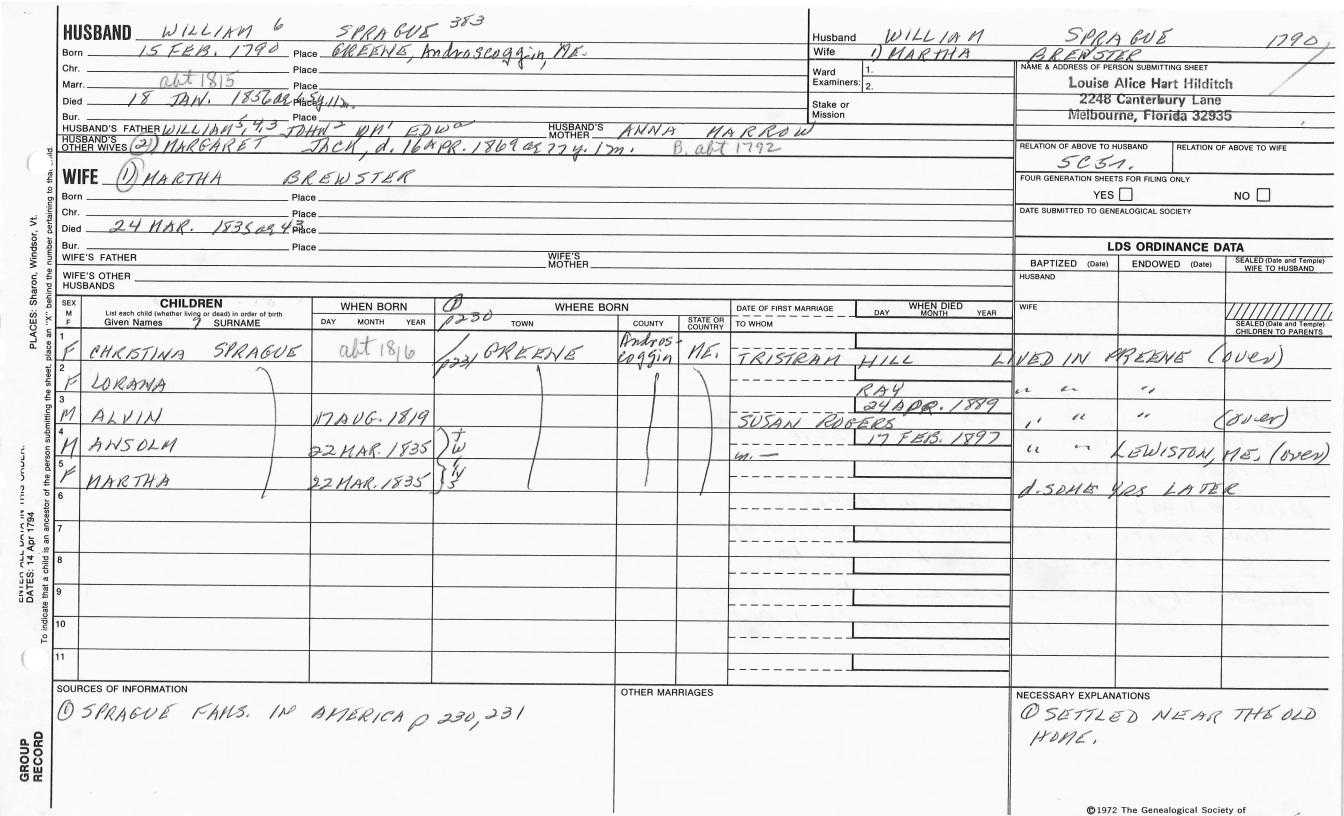 HUSBAND WILLIAM 6 SPRAGUE 383
Born 15 FEB. 1790 Place GREENE, Androscoggin, ME.
Chr. Place
Marr. abt 1815 Place
Died 18 JAN. 1856 Place
Bur. Place
HUSBAND'S FATHER WILLIAM 5,4,3 JOHN 2 HUSBAND'S MOTHER ANNA MARROW
HUSBAND'S OTHER WIVES (2) MARGARET JACK, d. 16 APR. 1869 ae 77y. 1m. B. abt 1792
Husband WILLIAM SPRAGUE 1790
Wife 1) MARTHA BREWSTER
Ward Examiners: 1.
2.
Stake or Mission
NAME & ADDRESS OF PERSON SUBMITTING SHEET
Louise Alice Hart Hilditch
2248 Canterbury Lane
Melbourne, Florida 32935
RELATION OF ABOVE TO HUSBAND RELATION OF ABOVE TO WIFE
5C5r.
FOUR GENERATION SHEETS FOR FILING ONLY
YES NO
DATE SUBMITTED TO GENEALOGICAL SOCIETY
WIFE (1) MARTHA BREWSTER
Born Place
Chr. Place
Died 24 MAR. 1835 ae 43 Place
Bur. Place
WIFE'S FATHER WIFE'S MOTHER
WIFE'S OTHER HUSBANDS
LDS ORDINANCE DATA
BAPTIZED (Date) ENDOWED (Date) SEALED (Date and Temple) WIFE TO HUSBAND
HUSBAND
WIFE
SEALED (Date and Temple) CHILDREN TO PARENTS
SEX M F CHILDREN WHEN BORN ① WHERE BORN DATE OF FIRST MARRIAGE WHEN DIED
List each child (whether living or dead) in order of birth
Given Names ? SURNAME DAY MONTH YEAR p230 TOWN COUNTY STATE OR COUNTRY TO WHOM DAY MONTH YEAR
1 F CHRISTINA SPRAGUE abt 1816 p231 GREENE Androscoggin ME. TRISTRAM HILL LIVED IN GREENE (over)
2 F LORANA RAY " " "
3 M ALVIN 17 AUG. 1819 SUSAN ROGERS 24 APR. 1889 " " " (over)
4 M ANSOLM 22 MAR. 1835 m. — 17 FEB. 1897 " " LEWISTON, ME. (over)
5 F MARTHA 22 MAR. 1835 d. SOME YRS LATER
twins
6
7
8
9
10
11
SOURCES OF INFORMATION
① SPRAGUE FAMS. IN AMERICA p 230, 231
OTHER MARRIAGES
NECESSARY EXPLANATIONS
① SETTLED NEAR THE OLD
HOME.
©1972 The Genealogical Society of
PLACES: Sharon, Windsor, Vt.
DATES: 14 Apr 1794
ENTER ALL DATA IN THIS ORDER:
To indicate that a child is an ancestor of the person submitting the sheet, place an "X" behind the number pertaining to that child.
GROUP RECORD